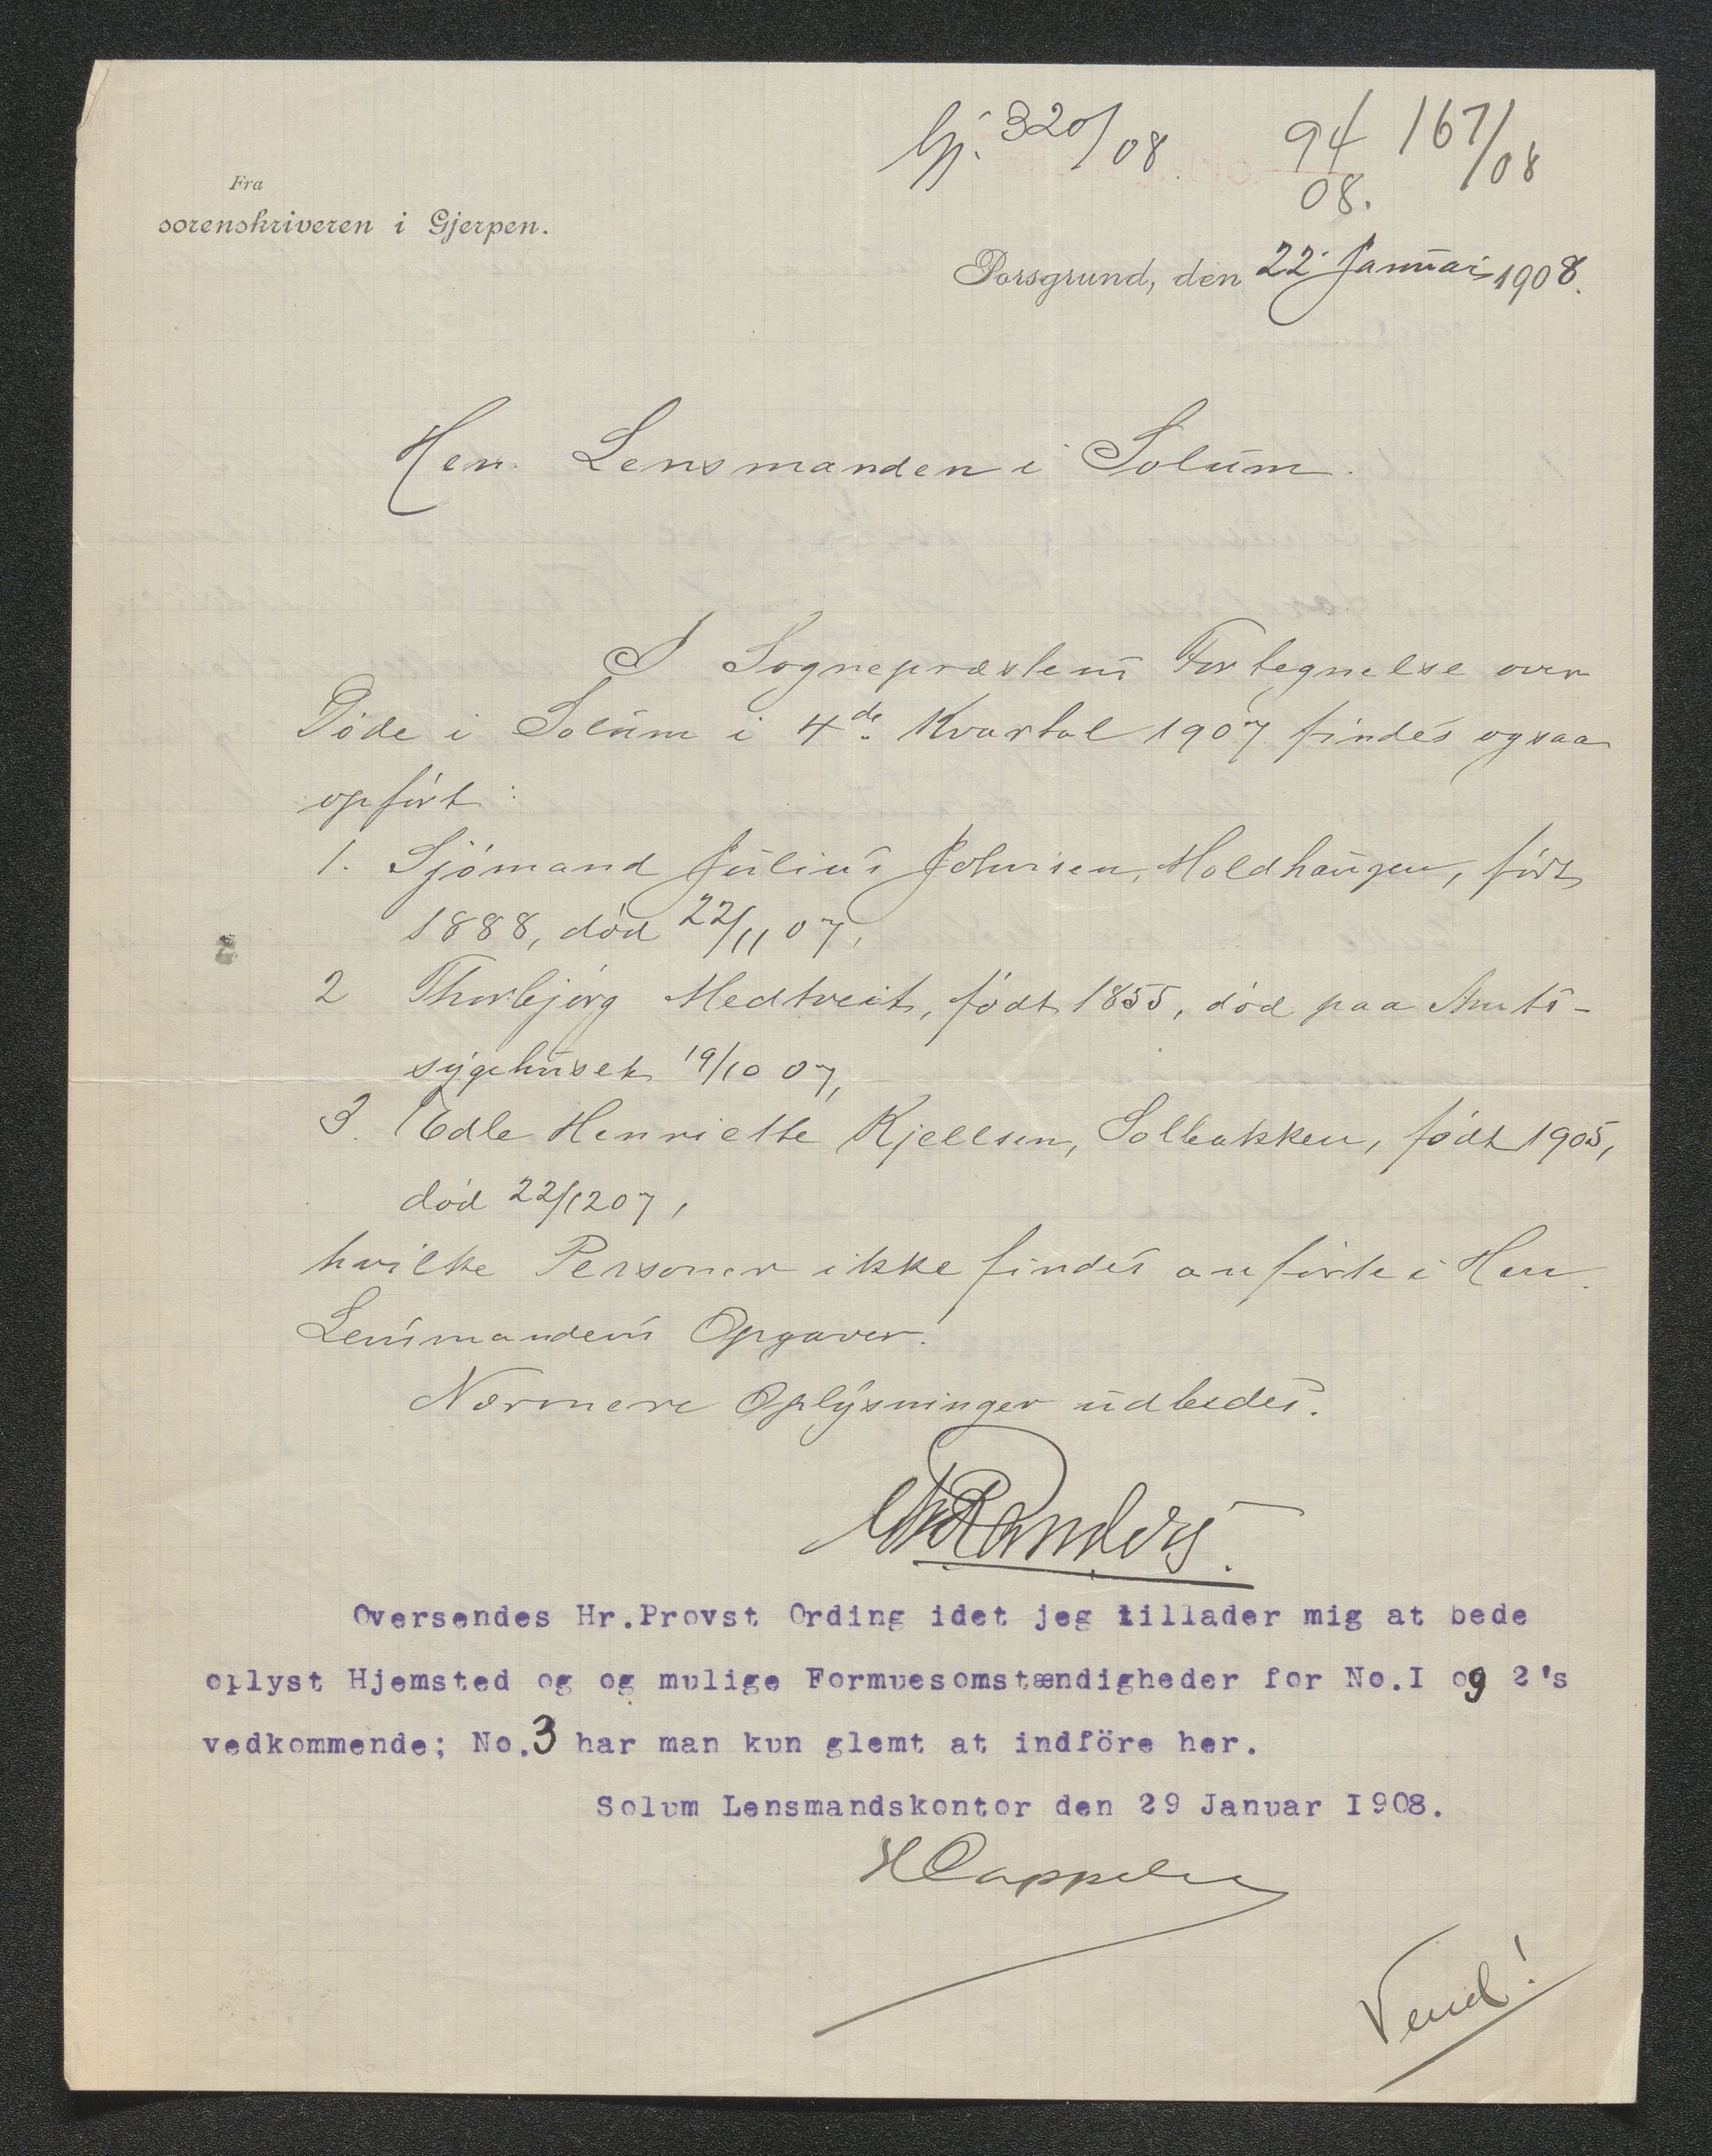 Gj. 320/08 94/08. 167/08
Fra
sorenskriveren i Gjerpen.
Porsgrund, den 22. Januar 1908.
Herr Lensmanden i Solum.
I Sognepræstens Fortegnelse over
Døde i Solum i 4de Kvartal 1907 findes ogsaa
opført:
1. Sjømand Julius Johnsen, Moldhaugen, født
1888, død 22/11 07,
2 Thorbjørg Medtveit, født 1855, død paa Amts-
sygehuset 19/10 07,
3. Edle Henriette Kjellsen, Solbakken, født 1905,
død 22/12 07,
hvilke Personer ikke findes anførte i Herr
Lensmandens Opgaver.
Nærmere Oplysninger udbedes.
Randers.
Oversendes Hr.Provst Ording idet jeg tillader mig at bede
oplyst Hjemsted og og mulige Formuesomstændigheder for No.I og 2's
vedkommende; No.3 har man kun glemt at indföre her.
Solum Lensmandskontor den 29 Januar I908.
HCappelen
Vend!